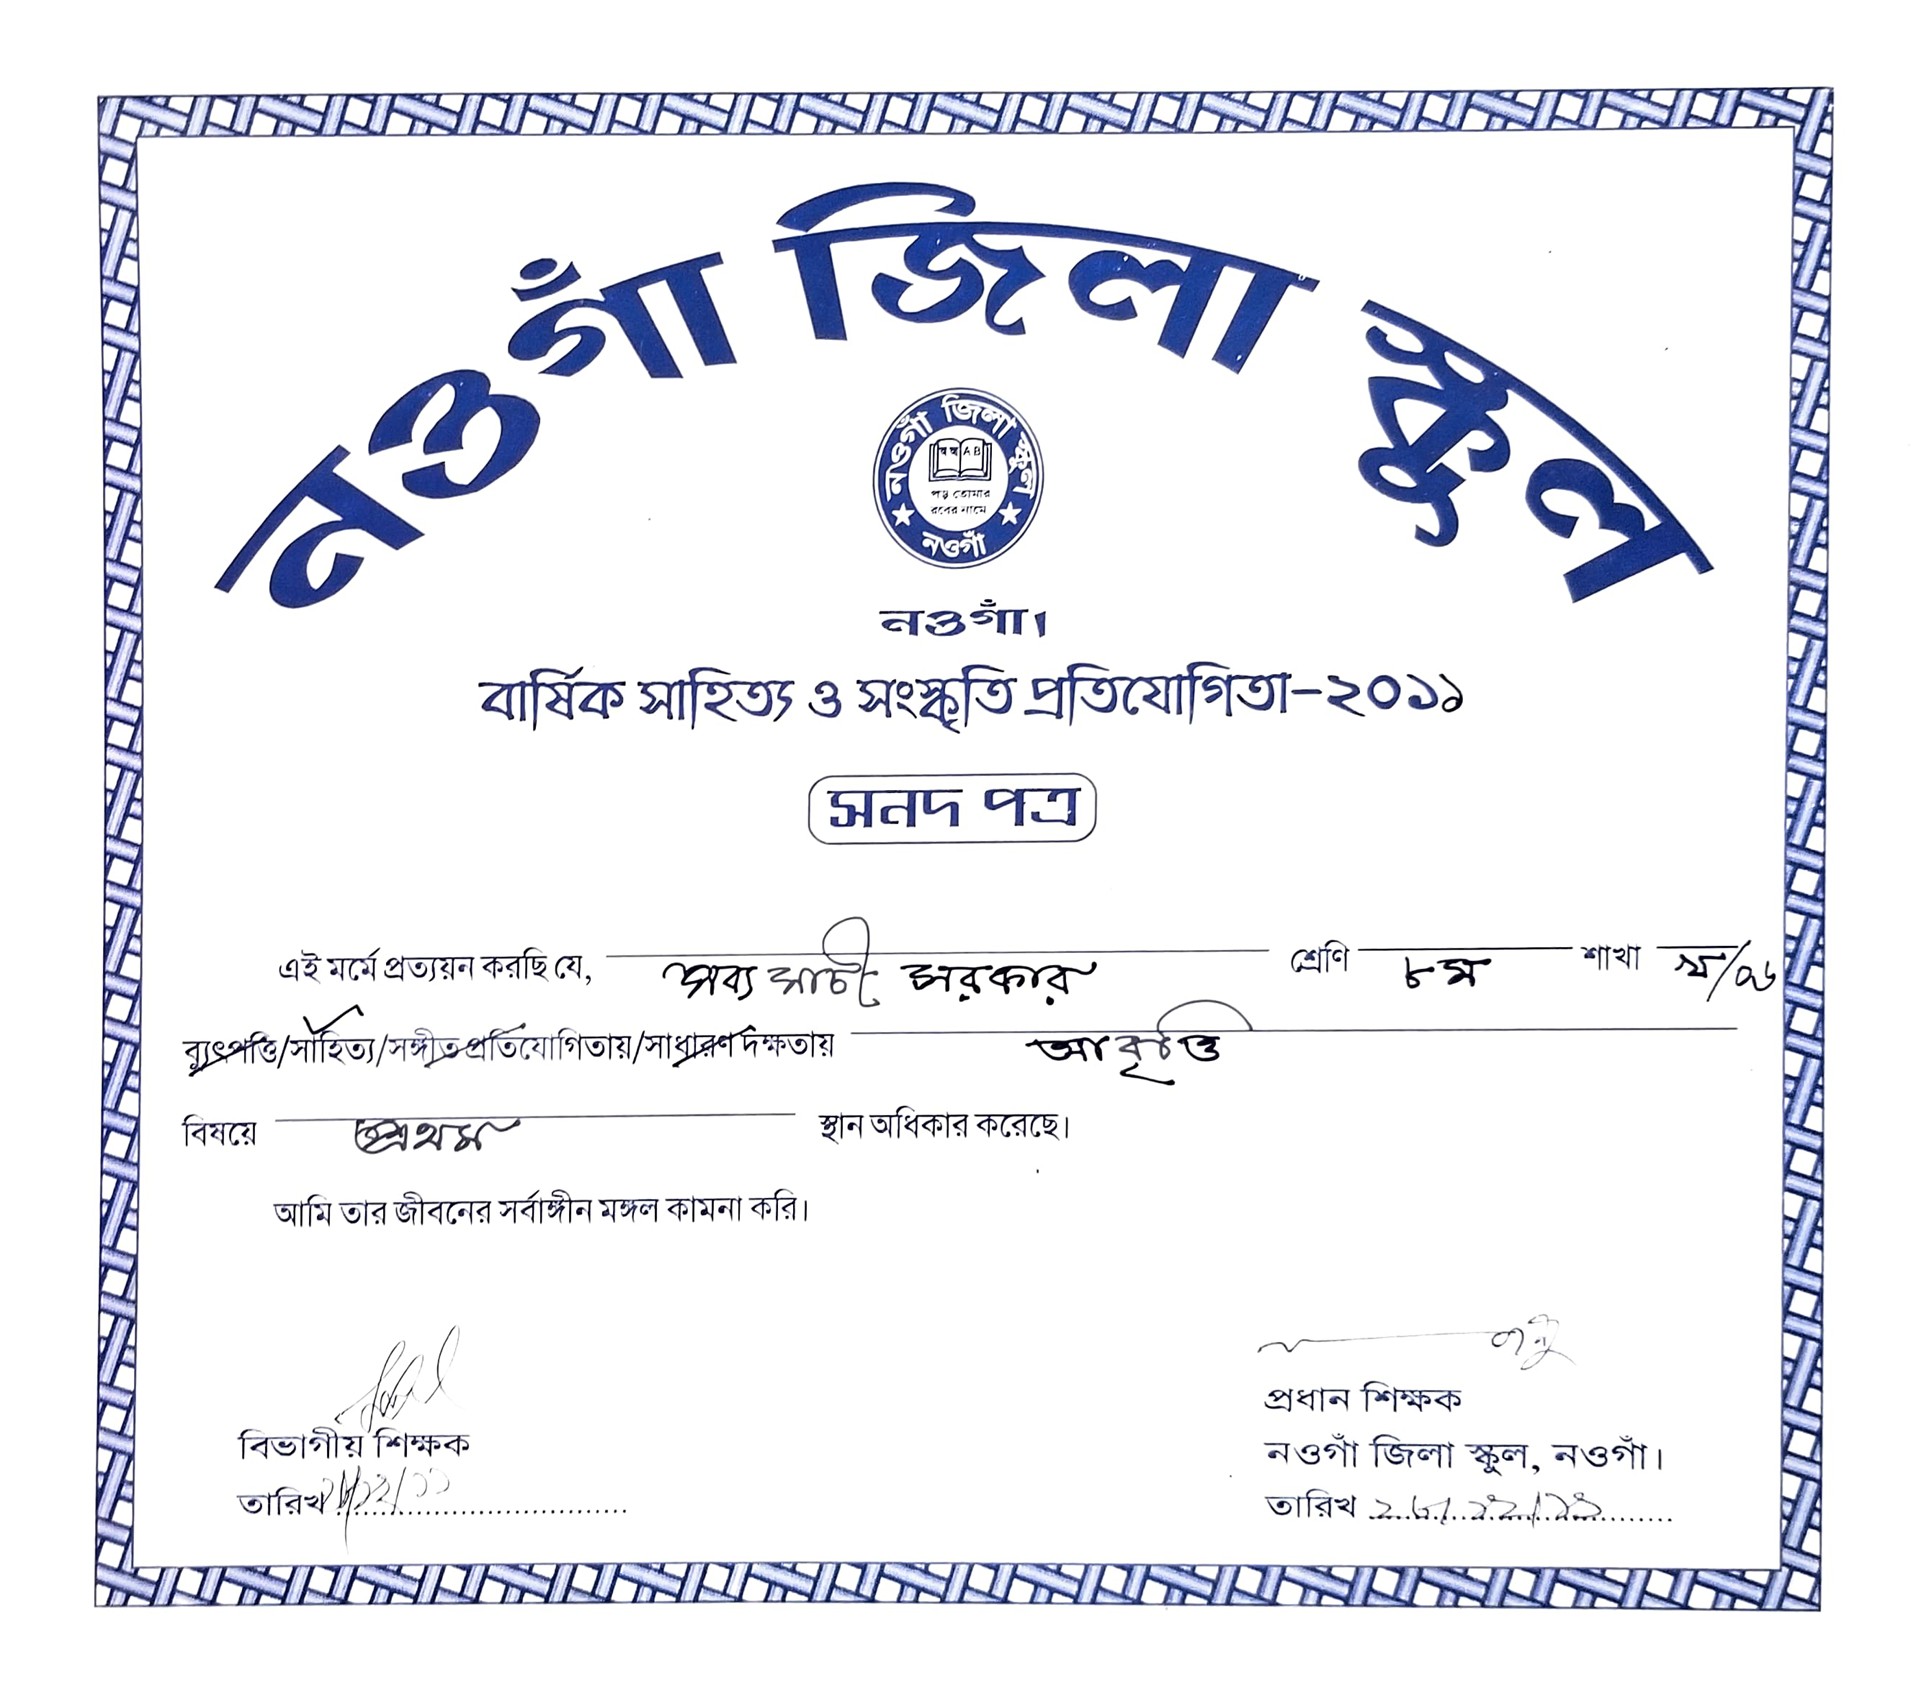 নওগাঁ জিলা স্কুল
নওগাঁ জিলা স্কুল
অ আ A B
পড় তোমার
রবের নামে
নওগাঁ
নওগাঁ।
বার্ষিক সাহিত্য ও সংস্কৃতি প্রতিযোগিতা-২০১১
সনদ পত্র
এই মর্মে প্রত্যয়ন করছি যে, সব্য সাচী সরকার শ্রেণি ৮ম শাখা
ব্যুৎপত্তি/সাহিত্য/সঙ্গীত প্রতিযোগিতায়/সাধারণ দক্ষতায় আবৃত্তি
বিষয়ে প্রথম স্থান অধিকার করেছে।
আমি তার জীবনের সর্বাঙ্গীন মঙ্গল কামনা করি।
প্রধান শিক্ষক
বিভাগীয় শিক্ষক
নওগাঁ জিলা স্কুল, নওগাঁ।
তারিখ
তারিখ